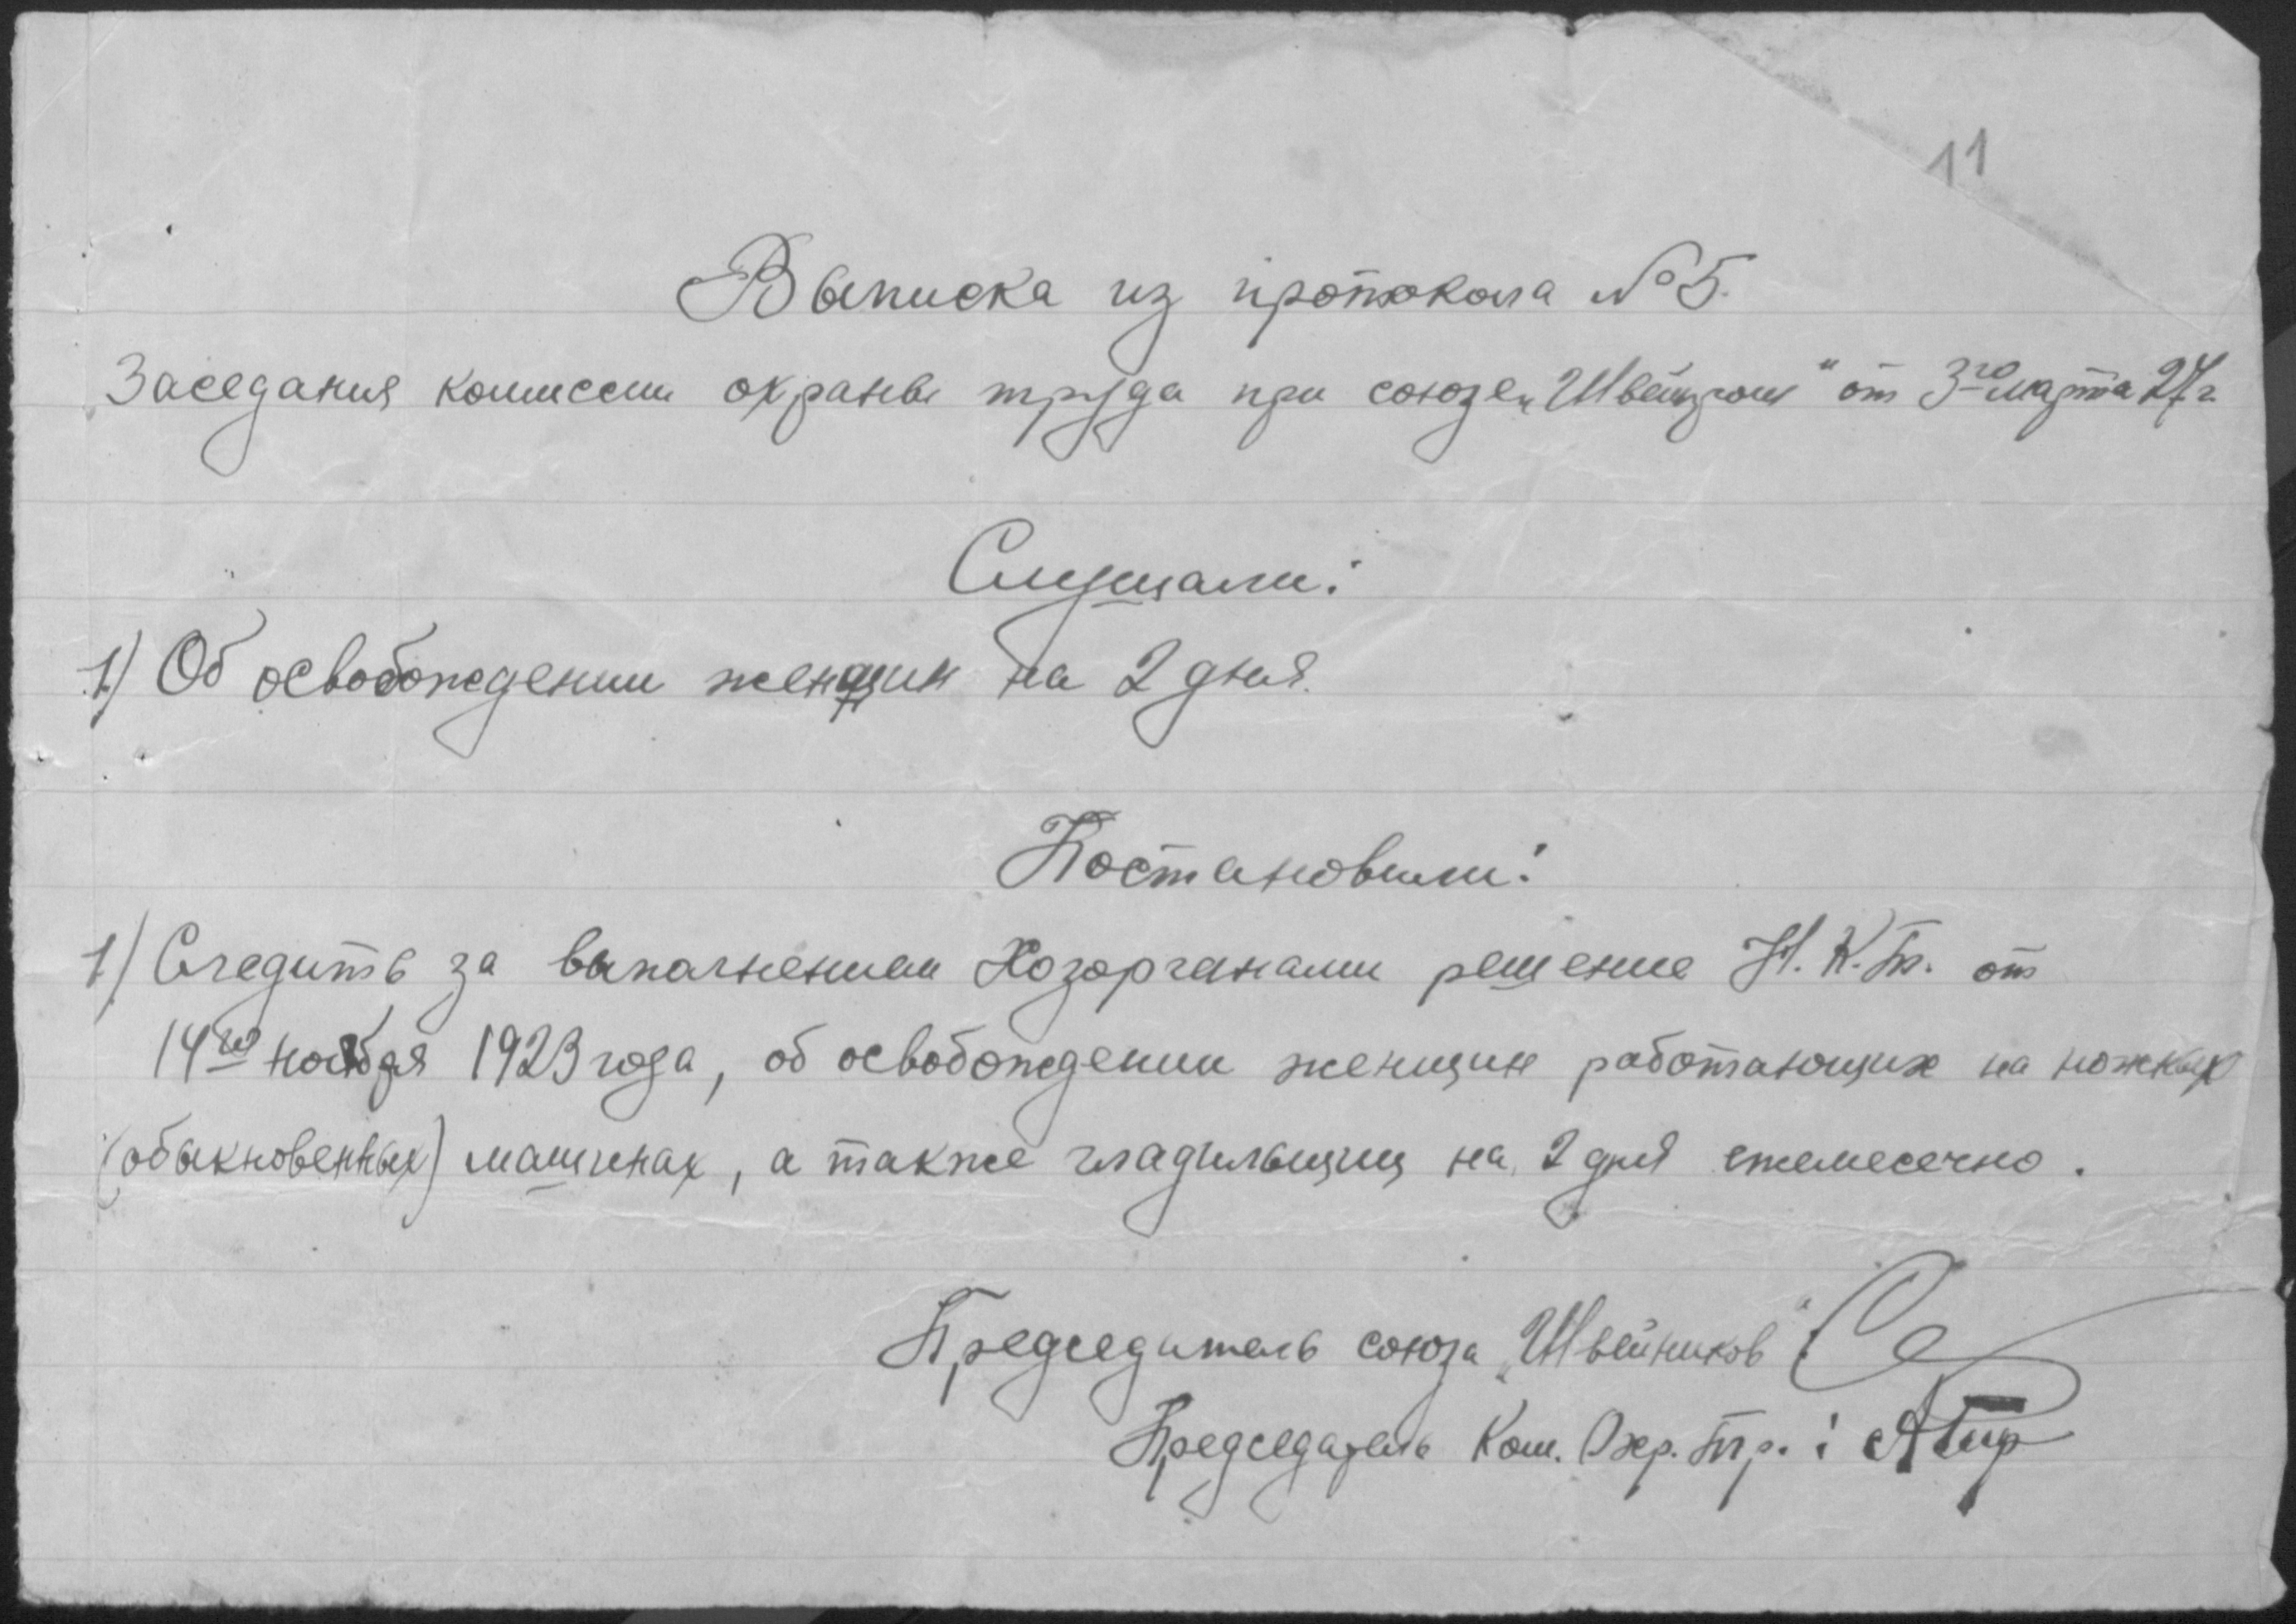 11
Выписка из протокола №5.
Заседания комиссии охраны труда при союзе „Швейпром" от 3го марта 27 г.
Слушали:
1) Об освобождении женщин на 2 дня.
Постановили:
1) Следить за выполнением Хозорганами решение Н.К.Т. от
14го ноября 1923 года, об освобождении женщин работающих на ножных
(обыкновенных) машинах, а также гладильщиц на 2 дня ежемесечно.
Председитель союза „Швейников"
Председатель Ком. Охр. Тр. :